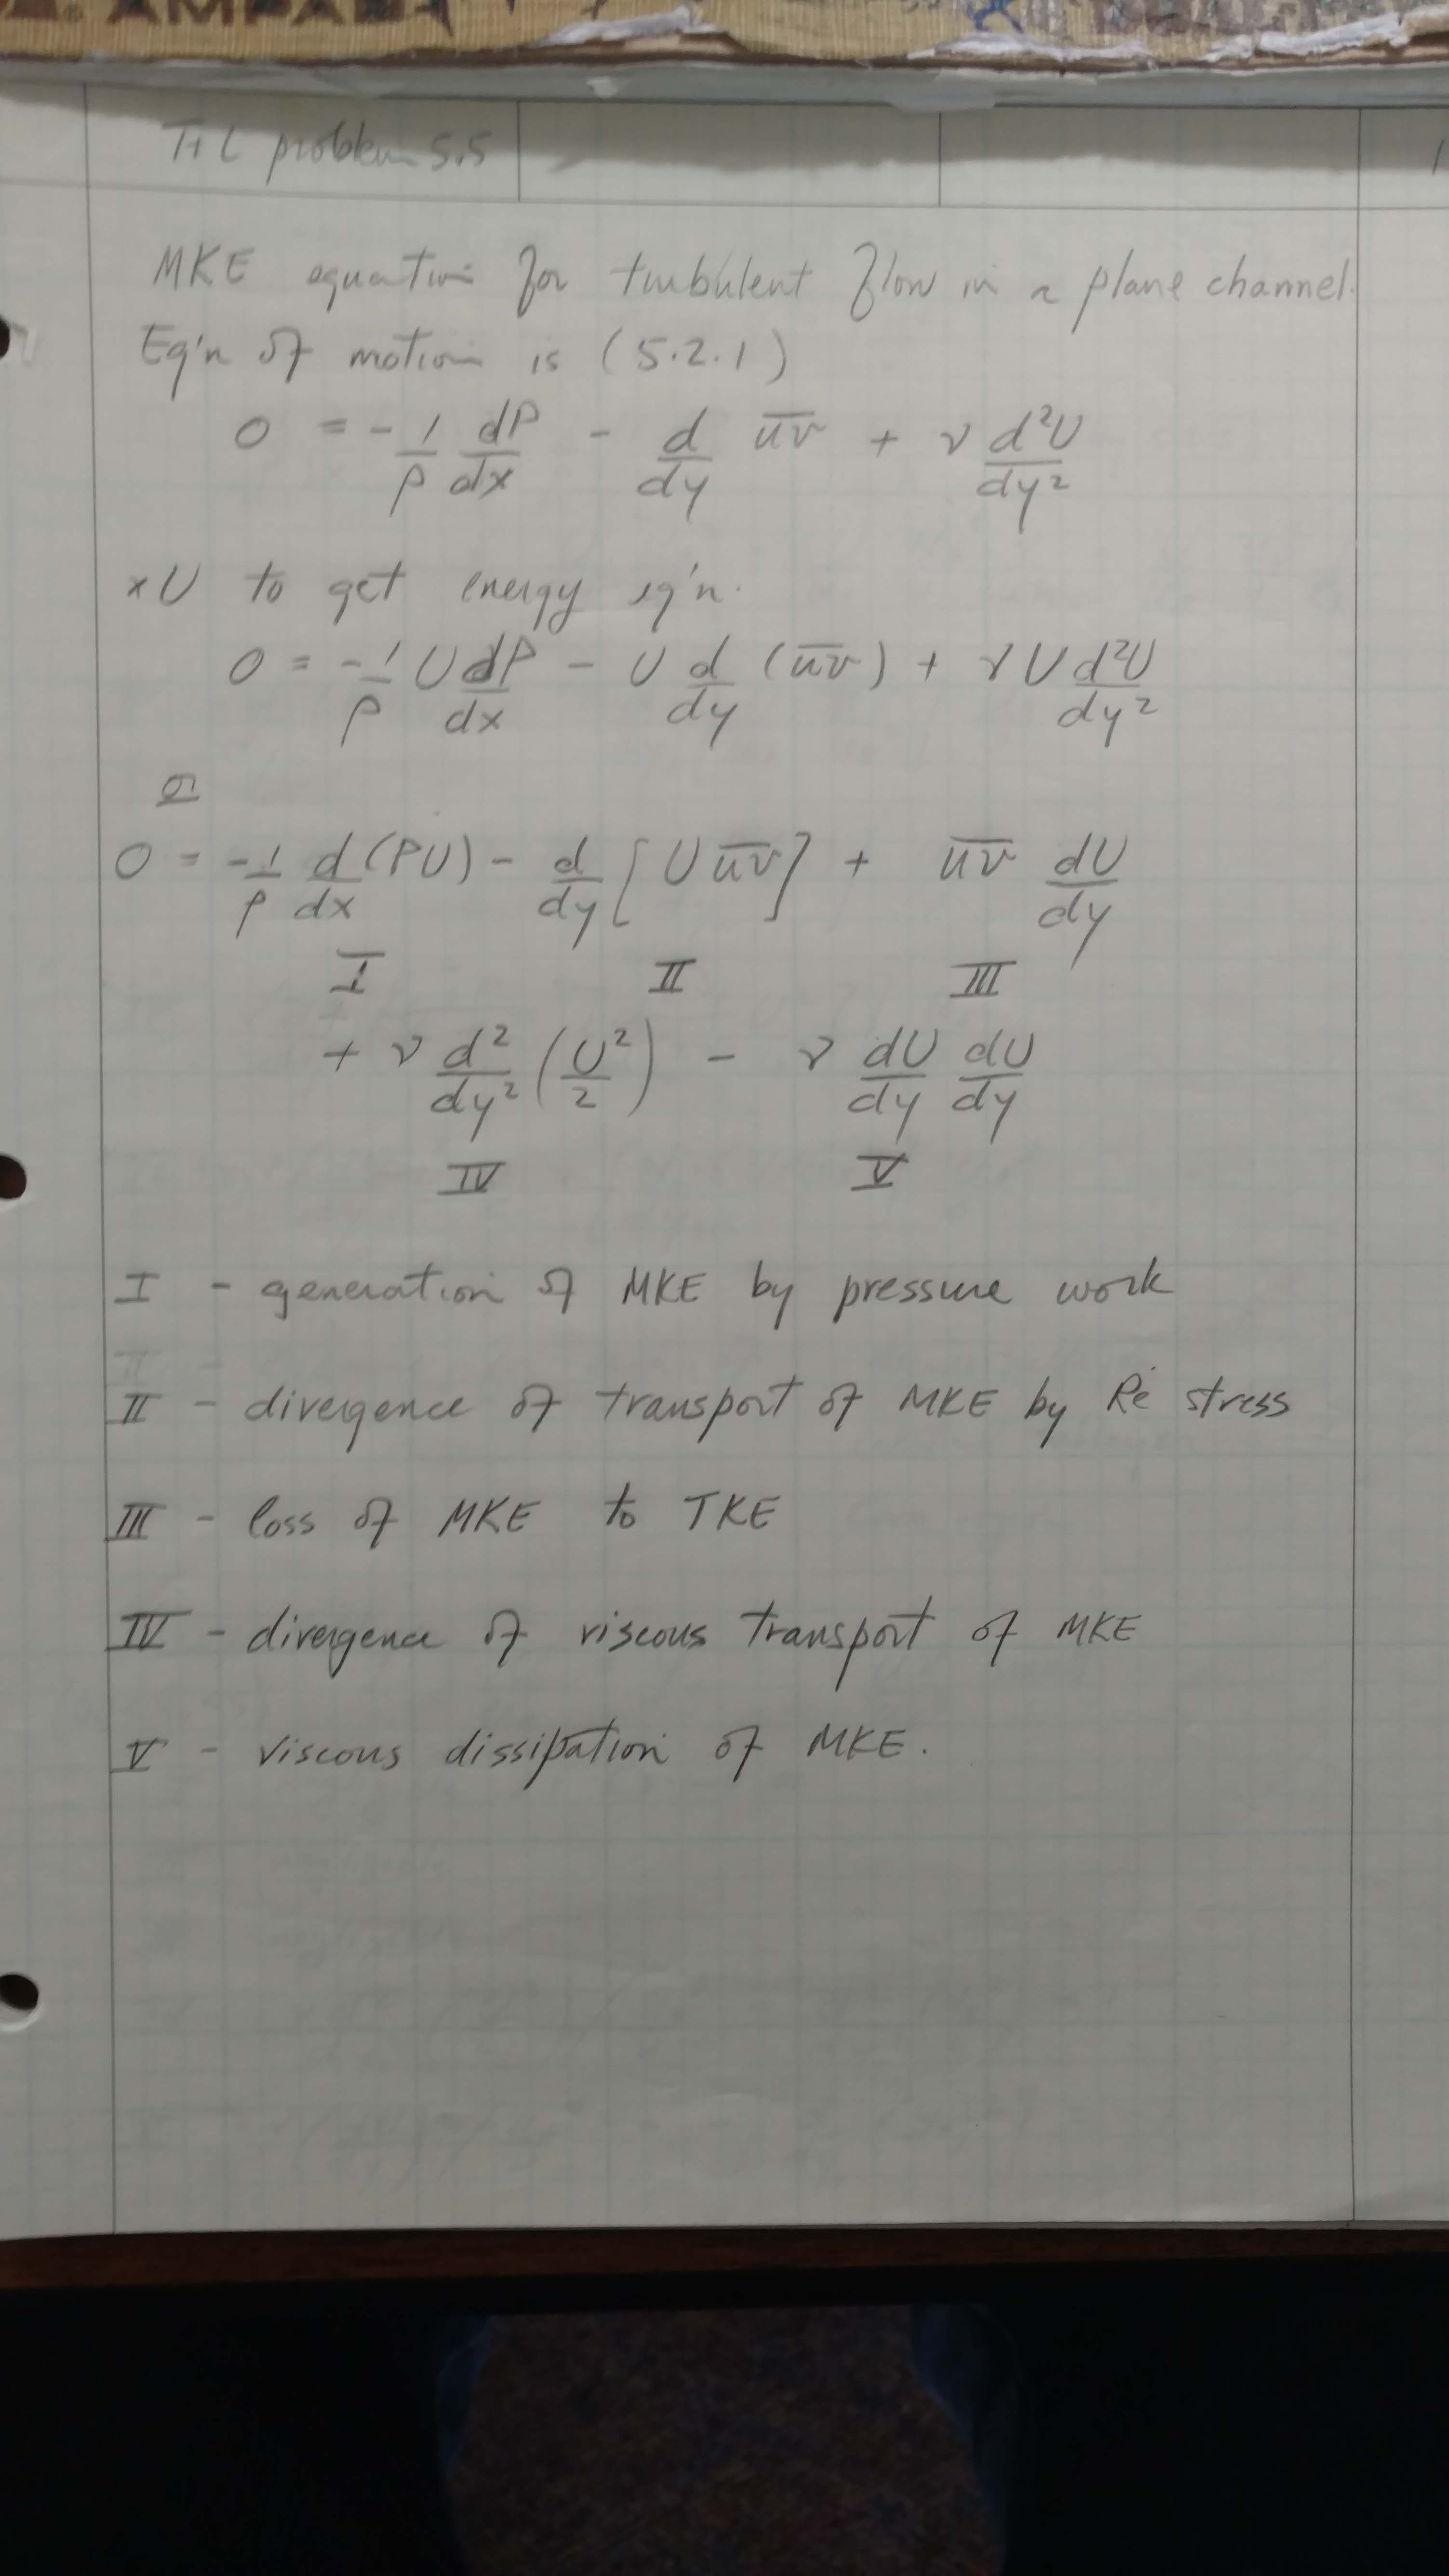 AMPA
T+L problem 5.5
1
MKE equation for turbulent flow in a plane channel.
Eq'n of motion is (5.2.1)
0 = - 1/ρ dP/dx - d/dy \overline{uv} + ν d²U/dy²
×U to get energy eq'n.
0 = - 1/ρ U dP/dx - U d/dy (\overline{uv}) + ν U d²U/dy²
or
0 = - 1/ρ d/dx (PU) - d/dy [U \overline{uv}] + \overline{uv} dU/dy
I II III
+ ν d²/dy² (U²/2) - ν dU/dy dU/dy
IV V
I - generation of MKE by pressure work
II - divergence of transport of MKE by Re stress
III - loss of MKE to TKE
IV - divergence of viscous transport of MKE
V - viscous dissipation of MKE.